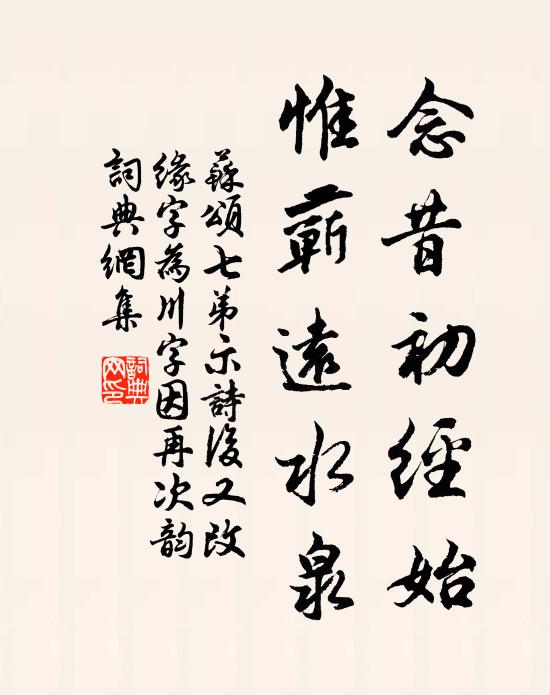 念昔初經始
惟蘄遠水泉
蘇頌七弟示詩後又改
緣字為川字因再次韵
詞典網集
詞典網印